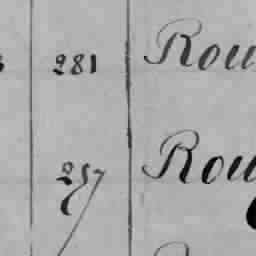 281 Rou
257 Rou